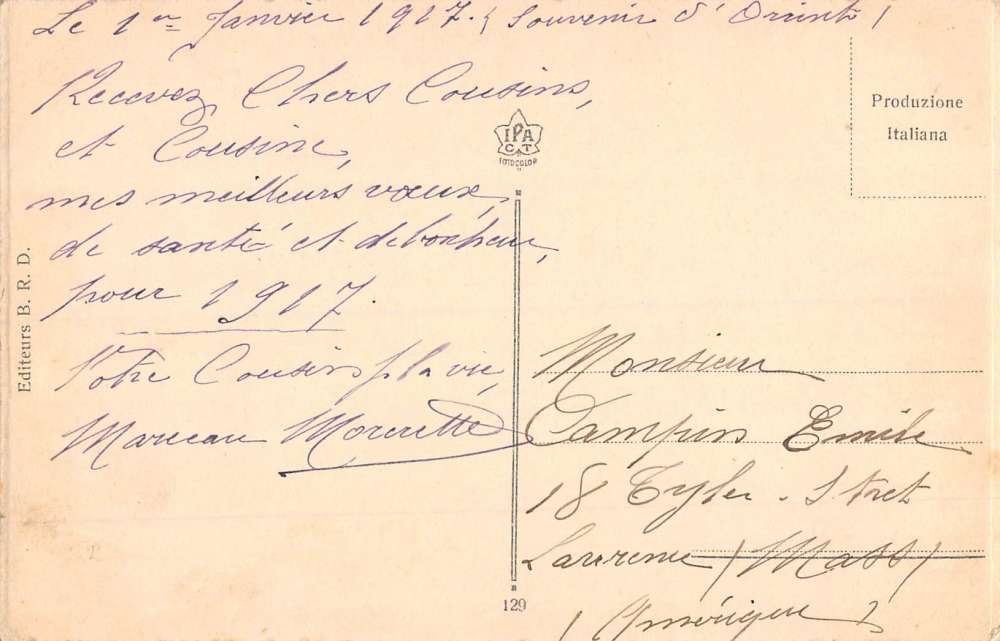 Le 1er Janvier 1917. (Souvenir d'Orient)
Recevez Chers Cousins,
et Cousine,
mes meilleurs vœux,
de santé et de bonheur,
pour 1917.
Votre Cousin p. la vie,
Marceau
Editeurs B. R. D.
IPA
CT
FOTOCOLOR
Produzione
Italiana
Monsieur
Campin Emile
18 Tyler - Stret
Lawrence (Mass)
(Amérique)
129